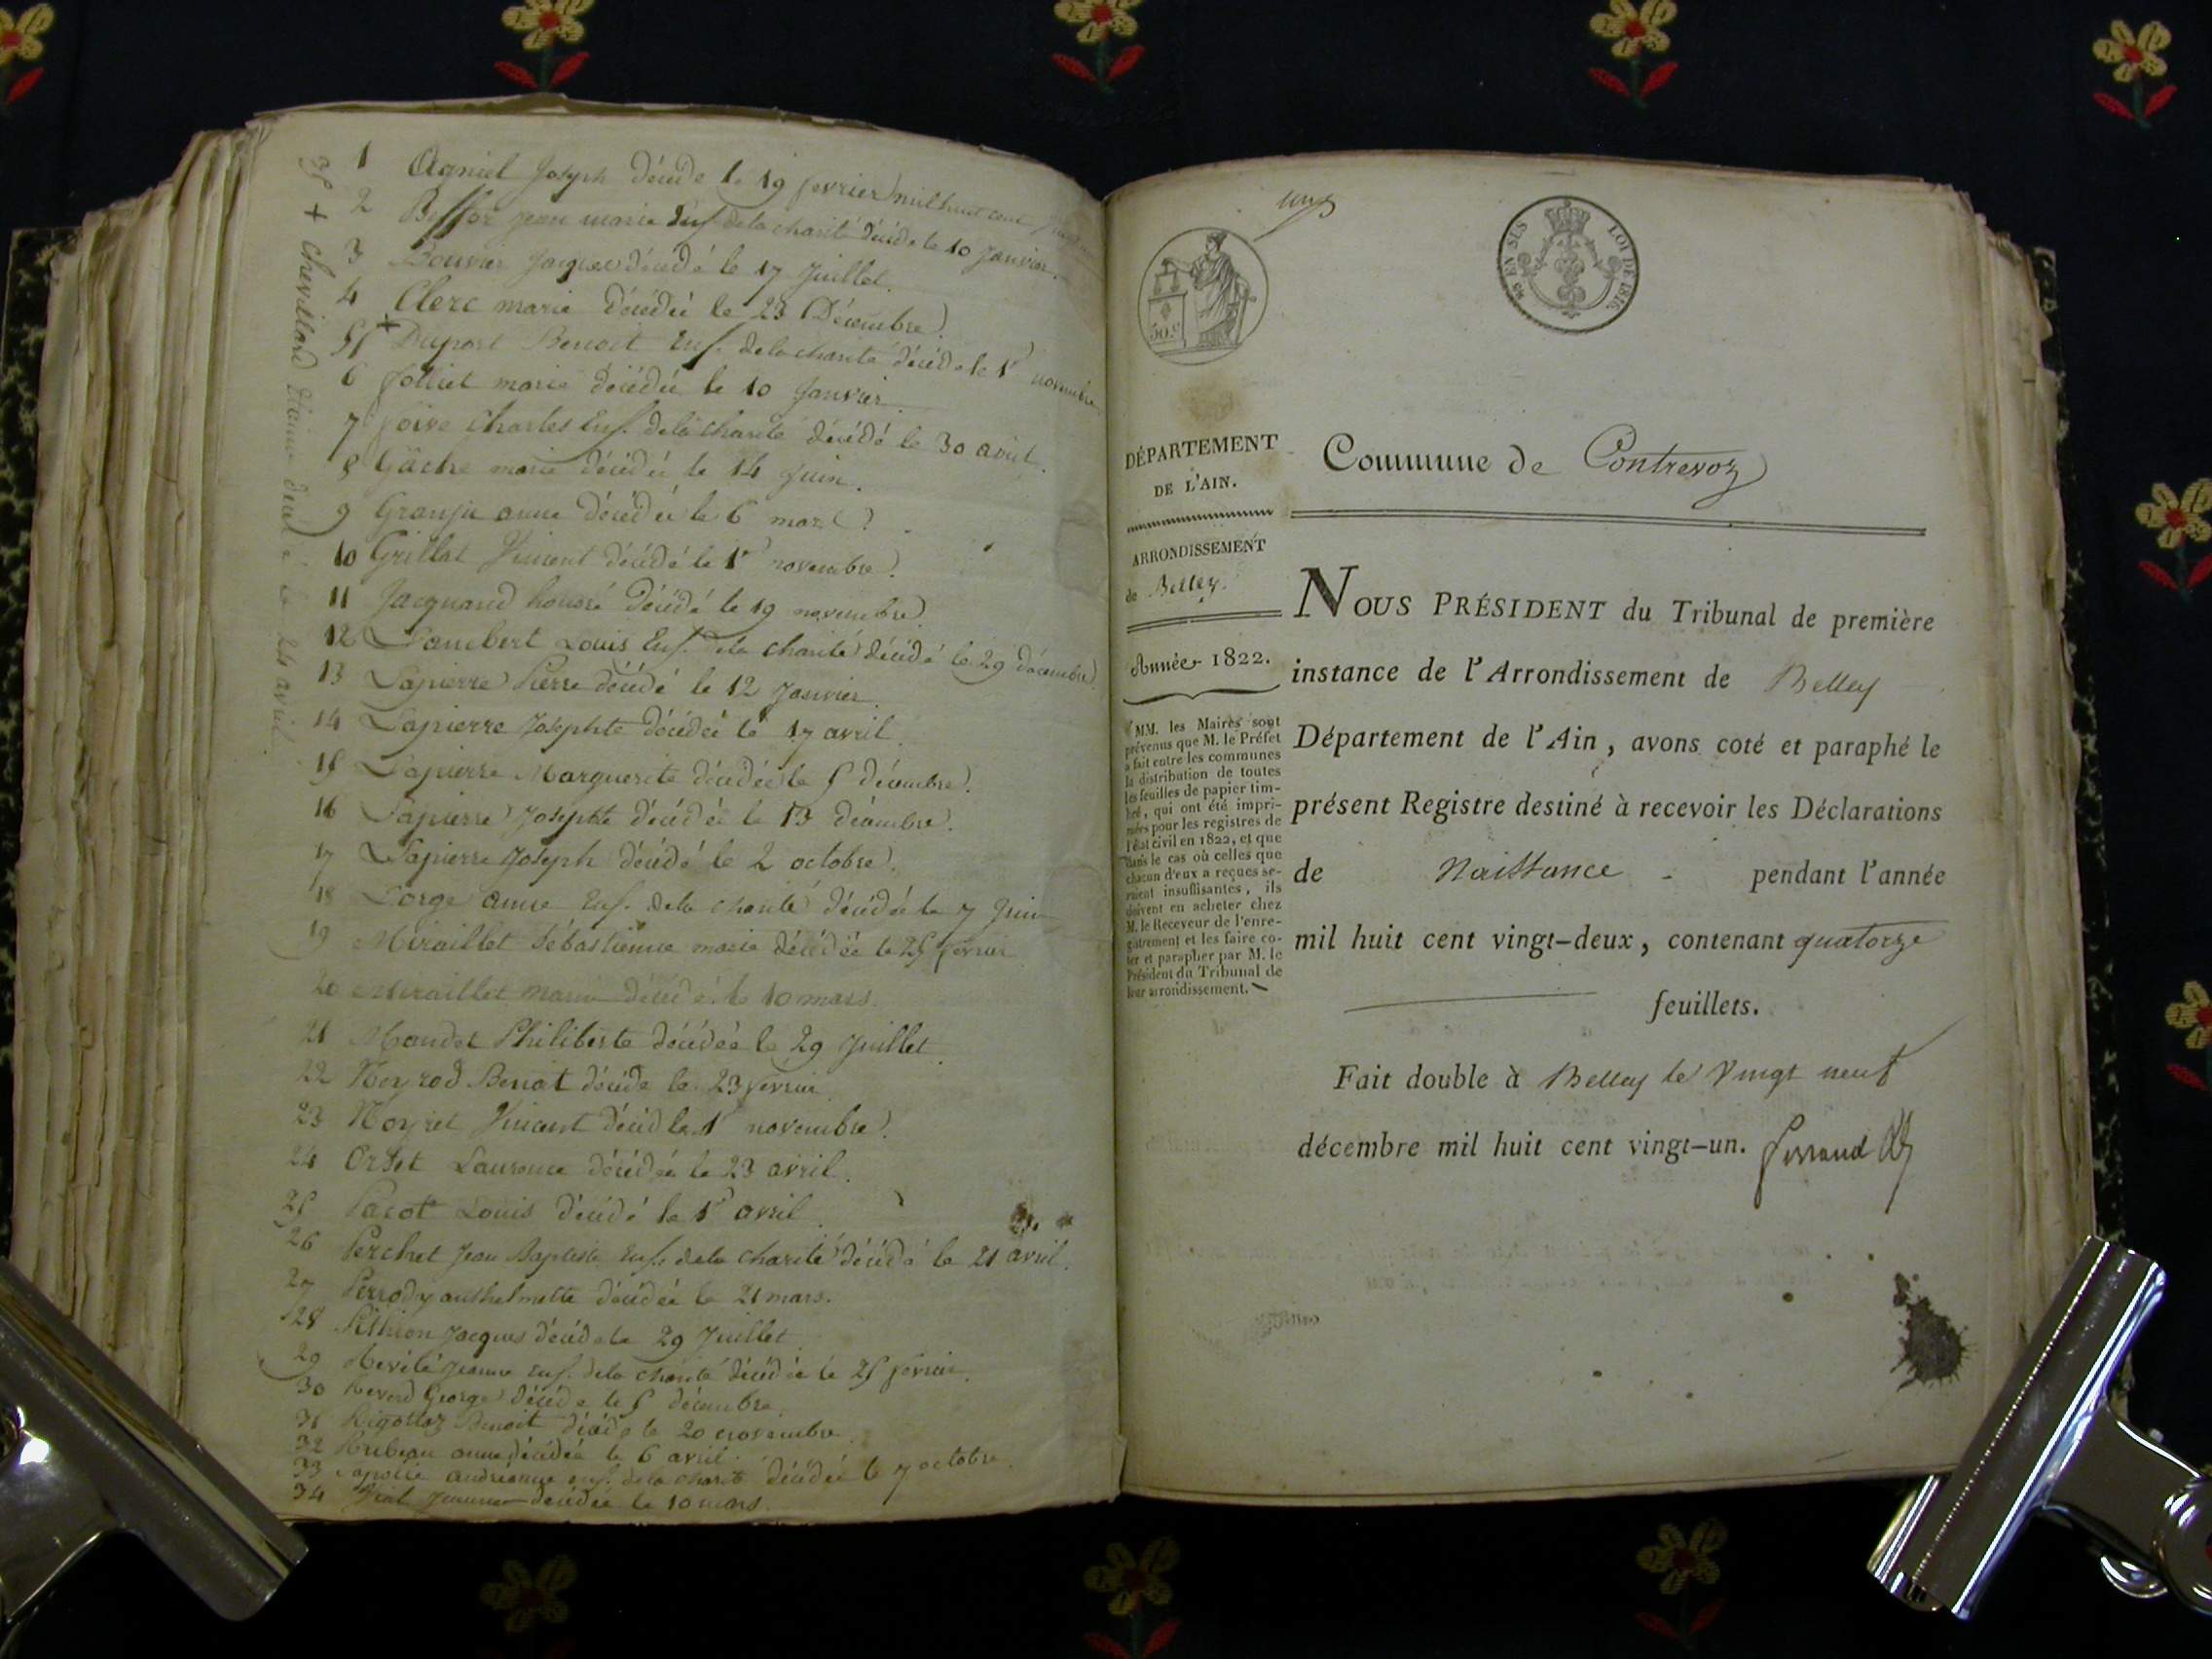 1 Agniel Joseph décédé le 19 fevrier mil huit cent
2 jean marie Enf. de la charité décédé le 10 Janvier.
3 Bouvier Jacques décédé le 17 Juillet.
4 Clerc marie décédée le 23 Décembre.
5 + Duport Benoit Enf. de la charité décédé le 1er novembre
6 Jolliet marie décédée le 10 Janvier
7 Charles Enf. de la charité décédé le 30 aout.
8 Gâche marie décédée le 14 Juin.
9 anne décédée le 6 mars.
10 Grillat Vincent décédé le 1r novembre.
11 Jacquand honoré décédé le 19 novembre.
12 Louis Enf. de la charité décédé le 29 décembre.
13 Lapierre Pierre décédé le 12 Janvier.
14 Lapierre Josephte décédée le 17 avril.
15 Lapierre Marguerite décédée le 5 décembre.
16 Lapierre Josephte décédée le 13 décembre.
17 Lapierre Joseph décédé le 2 octobre.
18 Lorge anne Enf. de la charité décédée le 7 Juin
19 Miraillet Sébastienne marie décédée le 25 fevrier
20 Miraillet marie décédée le 10 mars.
21 Philiberte décédée le 29 Juillet
22 Neyrod Benoit décédé le 23 fevrier
23 Vincent décéd le 1r novembre.
24 Laurence décédée le 23 avril.
25 Pacot Louis décédé le 1r avril
26 Perchet Jean Baptiste Enf. de la charité décédé le 21 avril.
27 Perrody anthelmette décédée le 21 mars.
28 Jacques décédé le 29 Juillet
29 Jeanne Enf. de la charité décédée le 25 fevrier.
30 George décédé le 5 décembre
31 Rigollaz Benoit décédé le 20 novembre
32 anne décédée le 6 avril
33 andréanne enf. de la charité décédée le 7 octobre.
34 décédée le 10 mars.
35 + chevillard Etienne décédé le 24 avril.
50.C
EN SUS LOI DE 1816.
DÉPARTEMENT
DE L'AIN.
ARRONDISSEMENT
de Belley.
Année 1822.
MM. les Maires sont
prévenus que M. le Préfet
a fait entre les communes
la distribution de toutes
les feuilles de papier tim-
bré, qui ont été impri-
mées pour les registres de
l'état civil en 1822, et que
dans le cas où celles que
chacun d'eux a reçues se-
raient insuffisantes, ils
doivent en acheter chez
M. le Receveur de l'enre-
gistrement et les faire co-
ter et parapher par M. le
Président du Tribunal de
leur arrondissement.
Commune de Contrevoz
NOUS PRÉSIDENT du Tribunal de première
instance de l'Arrondissement de Belley
Département de l'Ain, avons coté et paraphé le
présent Registre destiné à recevoir les Déclarations
de Naissance pendant l'année
mil huit cent vingt-deux, contenant quatorze
feuillets.
Fait double à Belley le Vingt neuf
décembre mil huit cent vingt-un.